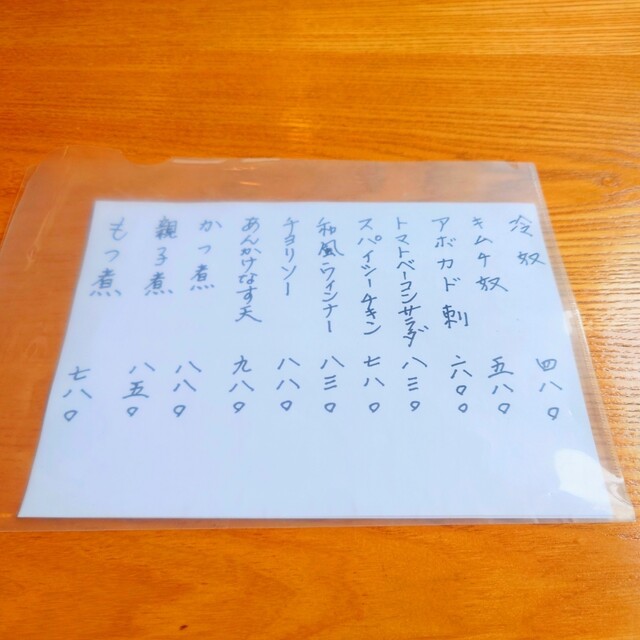 冷奴 四八〇
キムチ奴 五八〇
アボカド刺 六八〇
トマトベーコンサラダ 八三〇
スパイシーチキン 七八〇
和風ウィンナー 八三〇
チョリソー 八八〇
あんかけなす天 九八〇
かつ煮 八八〇
親子煮 八五〇
もつ煮 七八〇